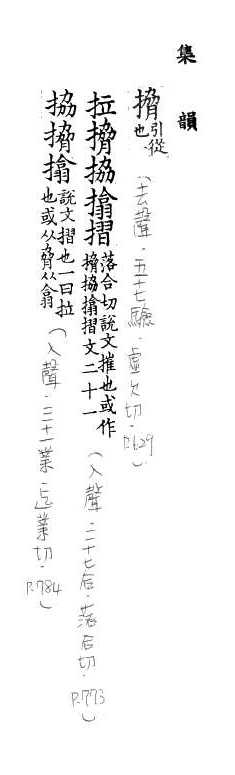 集韻
㩉引從也(去聲.五十七驗.虛欠切.P.629)
拉㩉拹搚摺落合切說文摧也或作㩉拹搚摺文二十一(入聲.二十七合.落合切.P.773)
拹㩉搚說文摺也一曰拉也或从脅从翕(入聲.三十一業.迄業切.P.784)